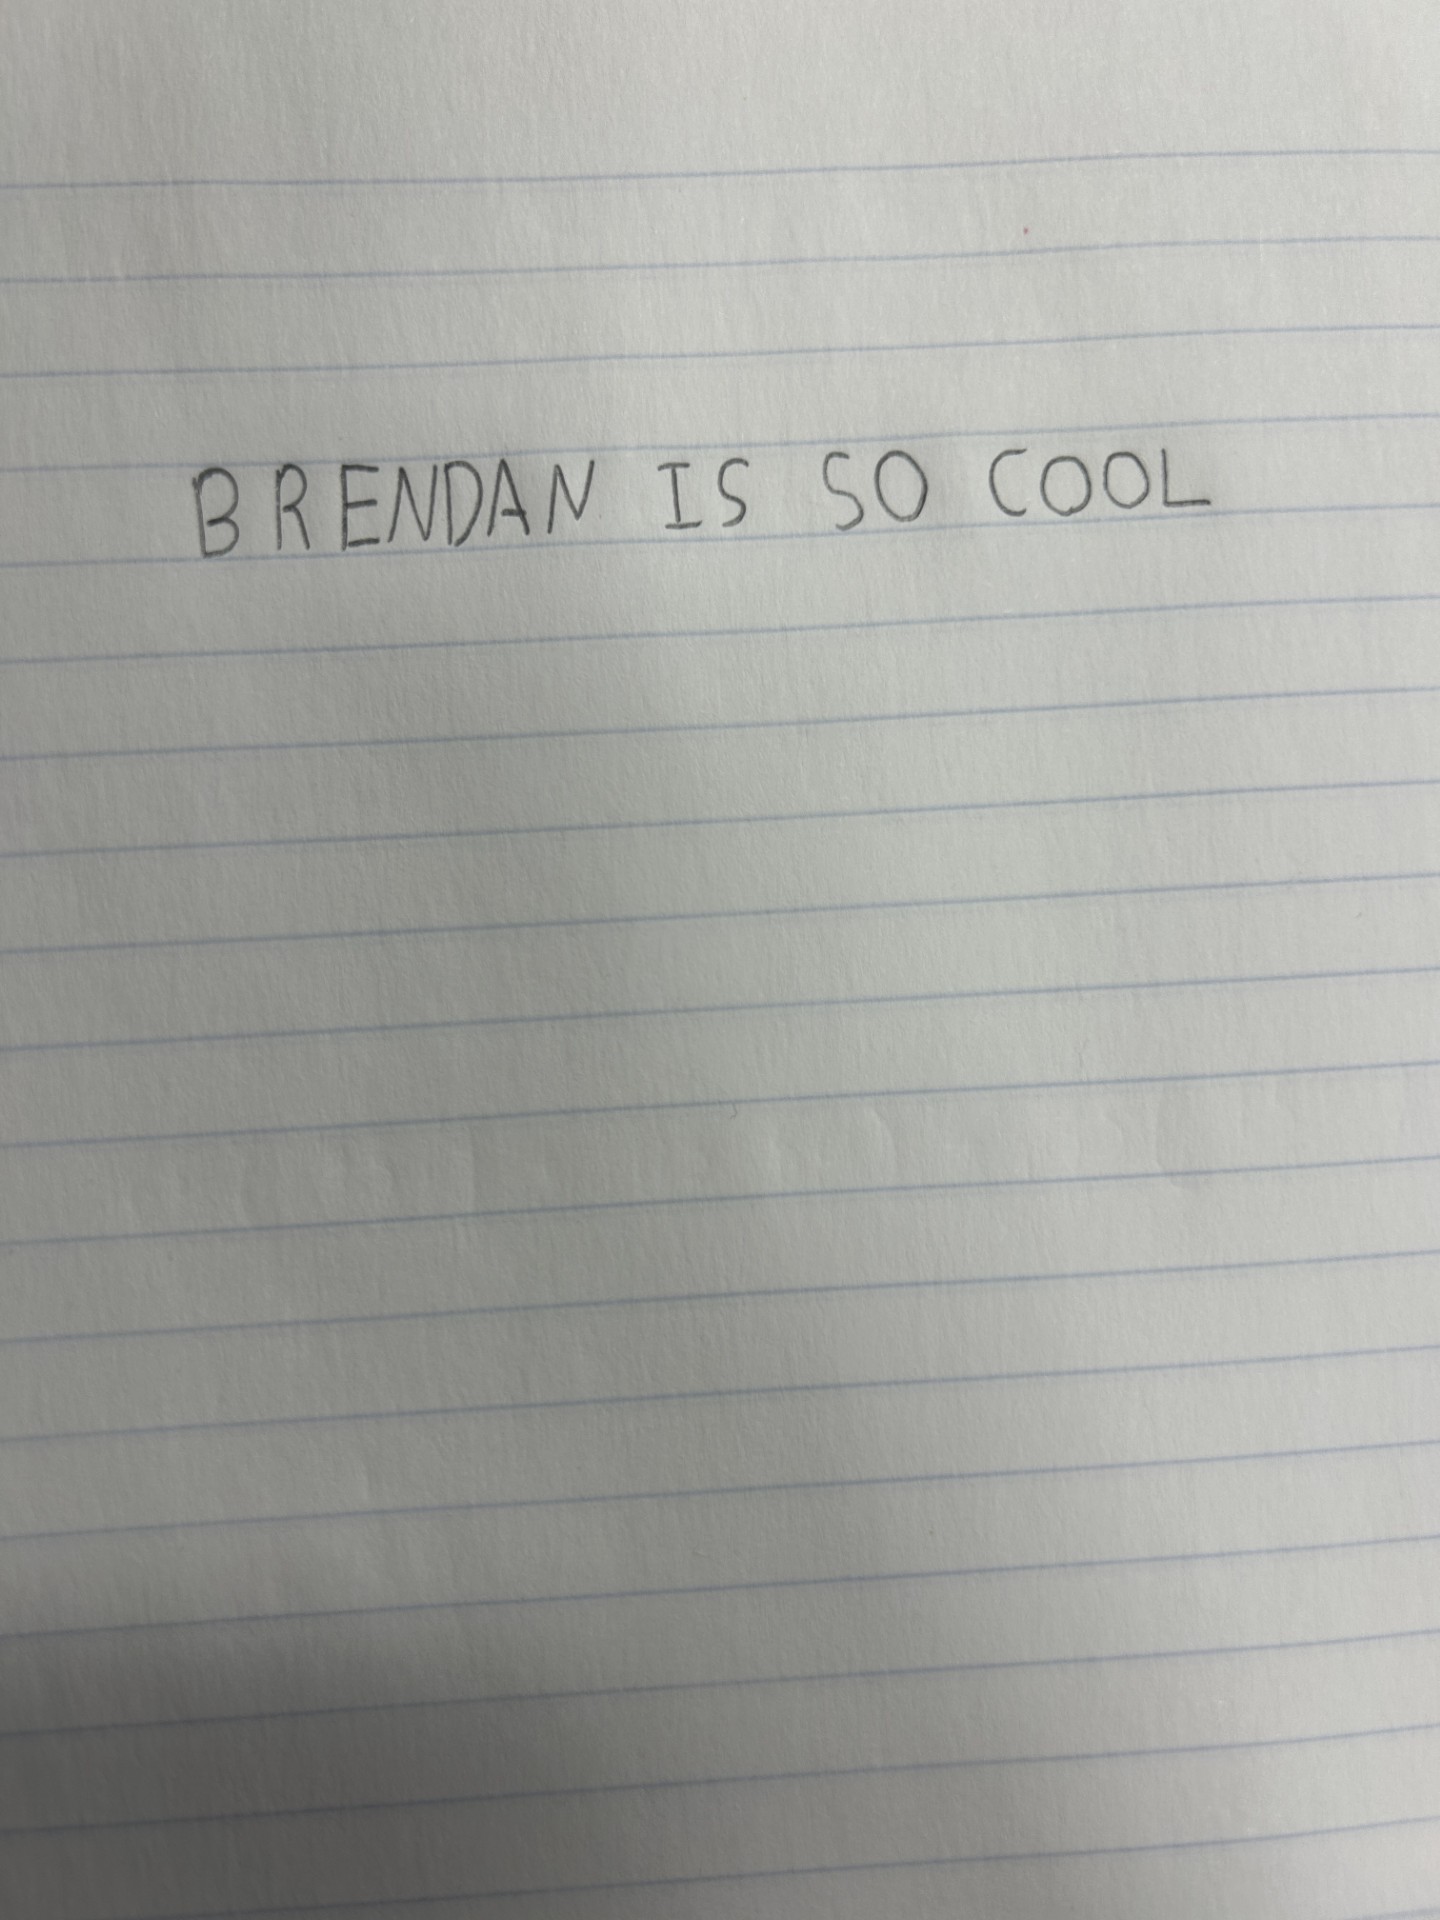 BRENDAN IS SO COOL